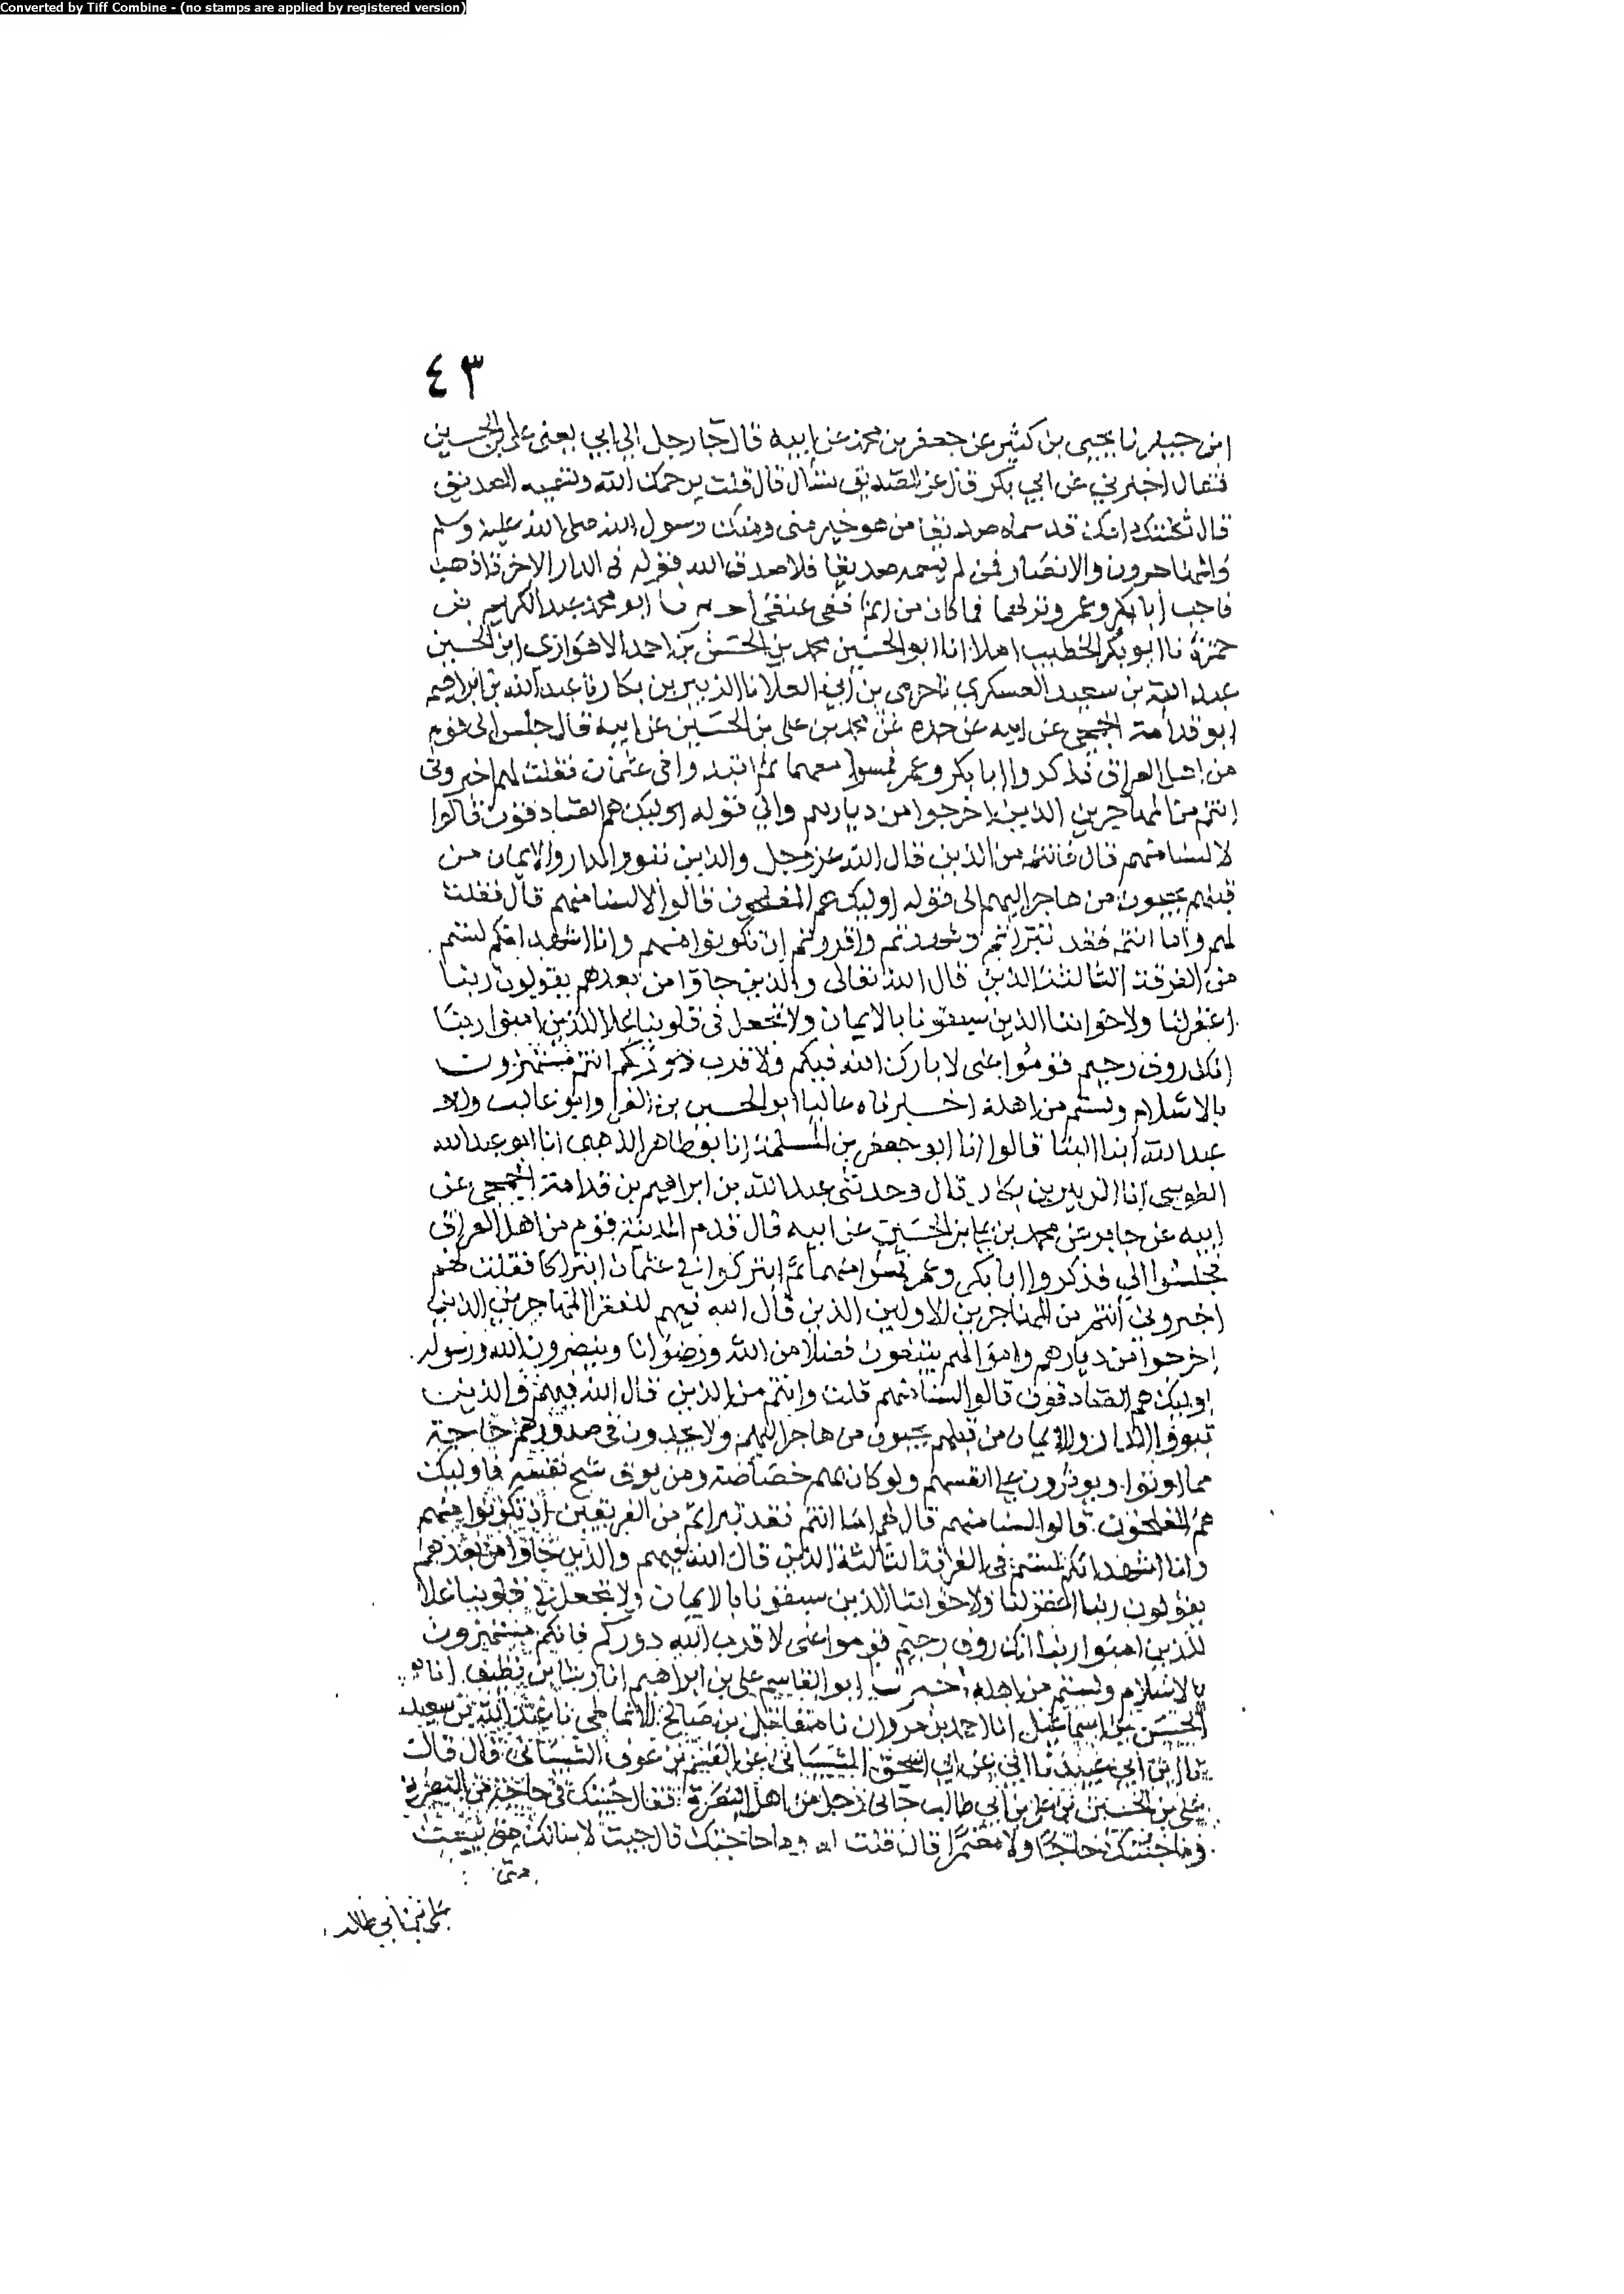 Converted by Tiff Combine - (no stamps are applied by registered version)
٤٣
ابن جبير نا يحيى بن كثير عن جعفر بن محمد عن ابيه قال جا رجل الى ابي يعني علي بن الحسين
فقال اخبرني عن ابي بكر قال عن الصديق تسال قال قلت يرحمك الله وتسميه الصديق
قال ثكلتك امك قد سماه صديقا من هو خير مني ومنك رسول الله صلى الله عليه وسلم
والمهاجرون والانصار فمن لم يسمه صديقا فلا صدق الله قوله في الدار الاخرة اذهب
فاحب ابا بكر وعمر وتولهما فما كان من اثم ففي عنقي نا ابو محمد عبد الكريم بن
حمزة نا ابو بكر الخطيب املا انا ابو الحسين محمد بن الحسن بن احمد الاهوازي ابن الحسين
عبد الله بن سعيد العسكري نا حرمي بن ابي العلا نا الزبير بن بكار نا عبد الله بن ابراهيم
ابو قدامة الجمحي عن ابيه عن جده عن محمد بن علي بن الحسين عن ابيه قال جلس الي قوم
من اهل العراق فذكروا ابا بكر وعمر فمسوا منهما ثم ابتدوا في عثمان فقلت لهم اخبروني
انتم من المهاجرين الذين اخرجوا من ديارهم والي قوله اوليك هم الصادقون قالوا
لا لسنا منهم قال فانتم من الذين قال الله عز وجل والذين تبووا الدار والايمان من
قبلهم يحبون من هاجر اليهم الى قوله اوليك هم المفلحون قالوا لا لسنا منهم قال فقلت
لهم واما انتم فقد تبراتم وشهدتم واقررتم ان تكونوا منهم وانا اشهد انكم لستم
من الفرقة الثالثة الذين قال الله تعالى والذين جاوا من بعدهم يقولون ربنا
اغفر لنا ولاخواننا الذين سبقونا بالايمان ولا تجعل في قلوبنا غلا للذين امنوا ربنا
انك روف رحيم قوموا عني لا بارك الله فيكم ولا قرب دوركم انتم مستهزون
بالاسلام ولستم من اهله اخبرناه عاليا ابو الحسين بن الفرا وابو غالب وابو
عبد الله ابنا البنا قالوا انا ابو جعفر بن المسلمة انا ابو طاهر الذهبي انا ابو عبد الله
الطوسي انا الزبير بن بكار قال وحدثني عبد الله بن ابراهيم بن قدامة الجمحي عن
ابيه عن جابر عن محمد بن علي بن الحسين عن ابيه قال قدم المدينة قوم من اهل العراق
فجلسوا الي فذكروا ابا بكر وعمر فمسوا منهما ثم ابتركوا في عثمان ابتراكا فقلت لهم
اخبروني انتم من المهاجرين الاولين الذين قال الله فيهم للفقرا المهاجرين الذين
اخرجوا من ديارهم واموالهم يبتغون فضلا من الله ورضوانا وينصرون الله ورسوله
اوليك هم الصادقون قالوا لسنا منهم قلت وانتم من الذين قال الله فيهم والذين
تبووا الدار والايمان من قبلهم يحبون من هاجر اليهم ولا يجدون في صدورهم حاجة
مما اوتوا ويوثرون على انفسهم ولو كان بهم خصاصة ومن يوق شح نفسه فاوليك
هم المفلحون قالوا لسنا منهم قال لهم اما انتم فقد تبراتم من الفريقين ان تكونوا منهم
وانا اشهد انكم لستم في الفرقة الثالثة الذين قال الله فيهم والذين جاوا من بعدهم
يقولون ربنا اغفر لنا ولاخواننا الذين سبقونا بالايمان ولا تجعل في قلوبنا غلا
للذين امنوا ربنا انك روف رحيم قوموا عني لا قرب الله دوركم فانكم مستهزون
بالاسلام ولستم من اهله اخبرنا ابو القاسم علي بن ابراهيم انا رشا بن نظيف انا
الحسن بن اسماعيل انا احمد بن مروان نا صالح الانماطي نا عبد الله بن سعيد
نا ابن ابي عبيد نا ابي عن ابي اسحق الشيباني عن القسم بن عوف الشيباني قال قال
علي بن الحسين بن علي بن ابي طالب جاني رجل من اهل البصرة فقال جيتك في حاجة من البصرة
وما جيتك حاجا ولا معتمرا قال قلت له وما حاجتك قال جيت لاسالك متى يبعث
متى
علي بن ابي طالب